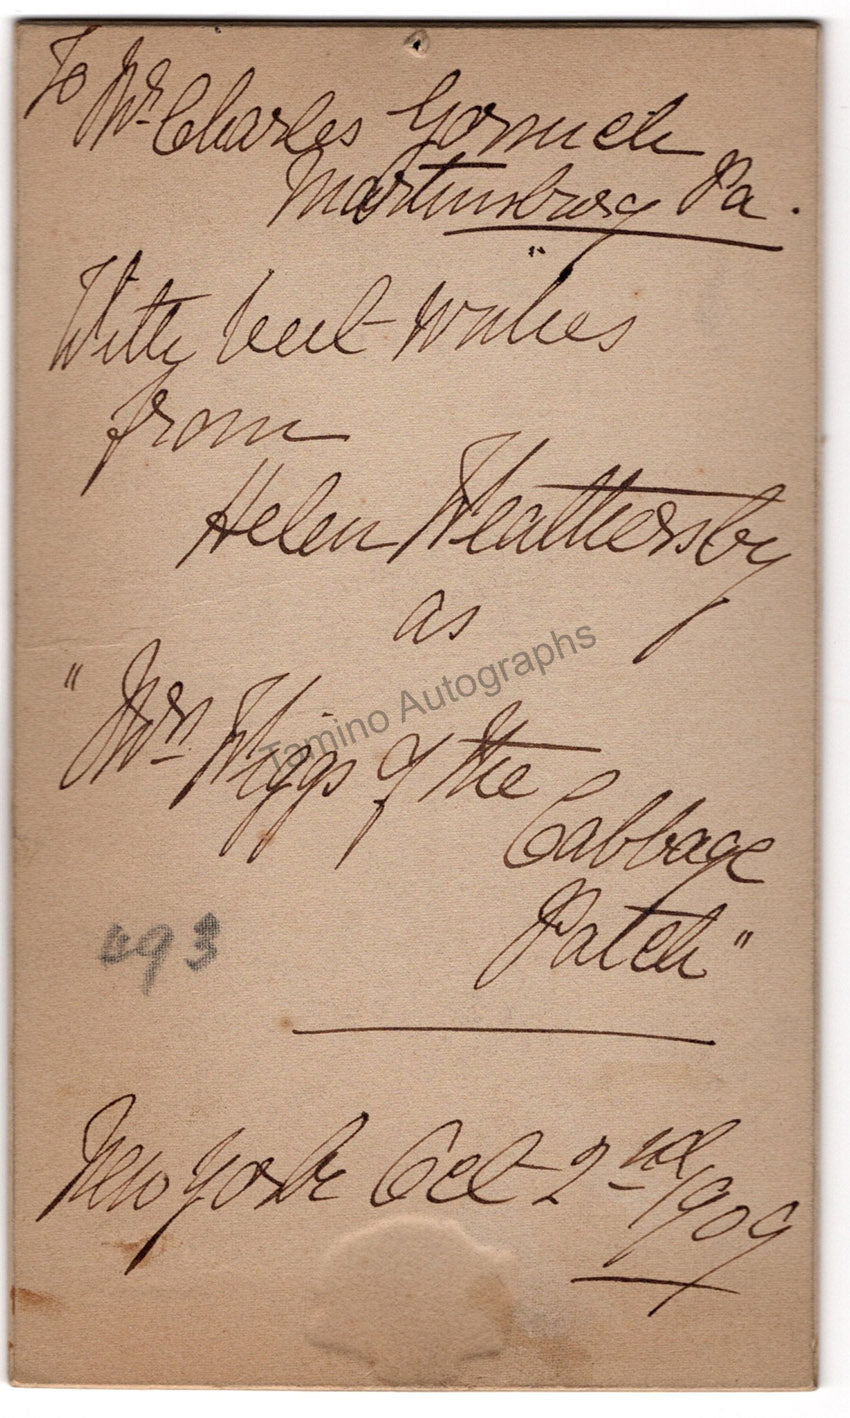 To Mr. Charles
Martinsburg Pa.
With best wishes
from
Helen Weathersby
as
Tamino Autographs
"Mrs Wiggs of the
Cabbage
Patch"
493
New York Oct 2nd 1909